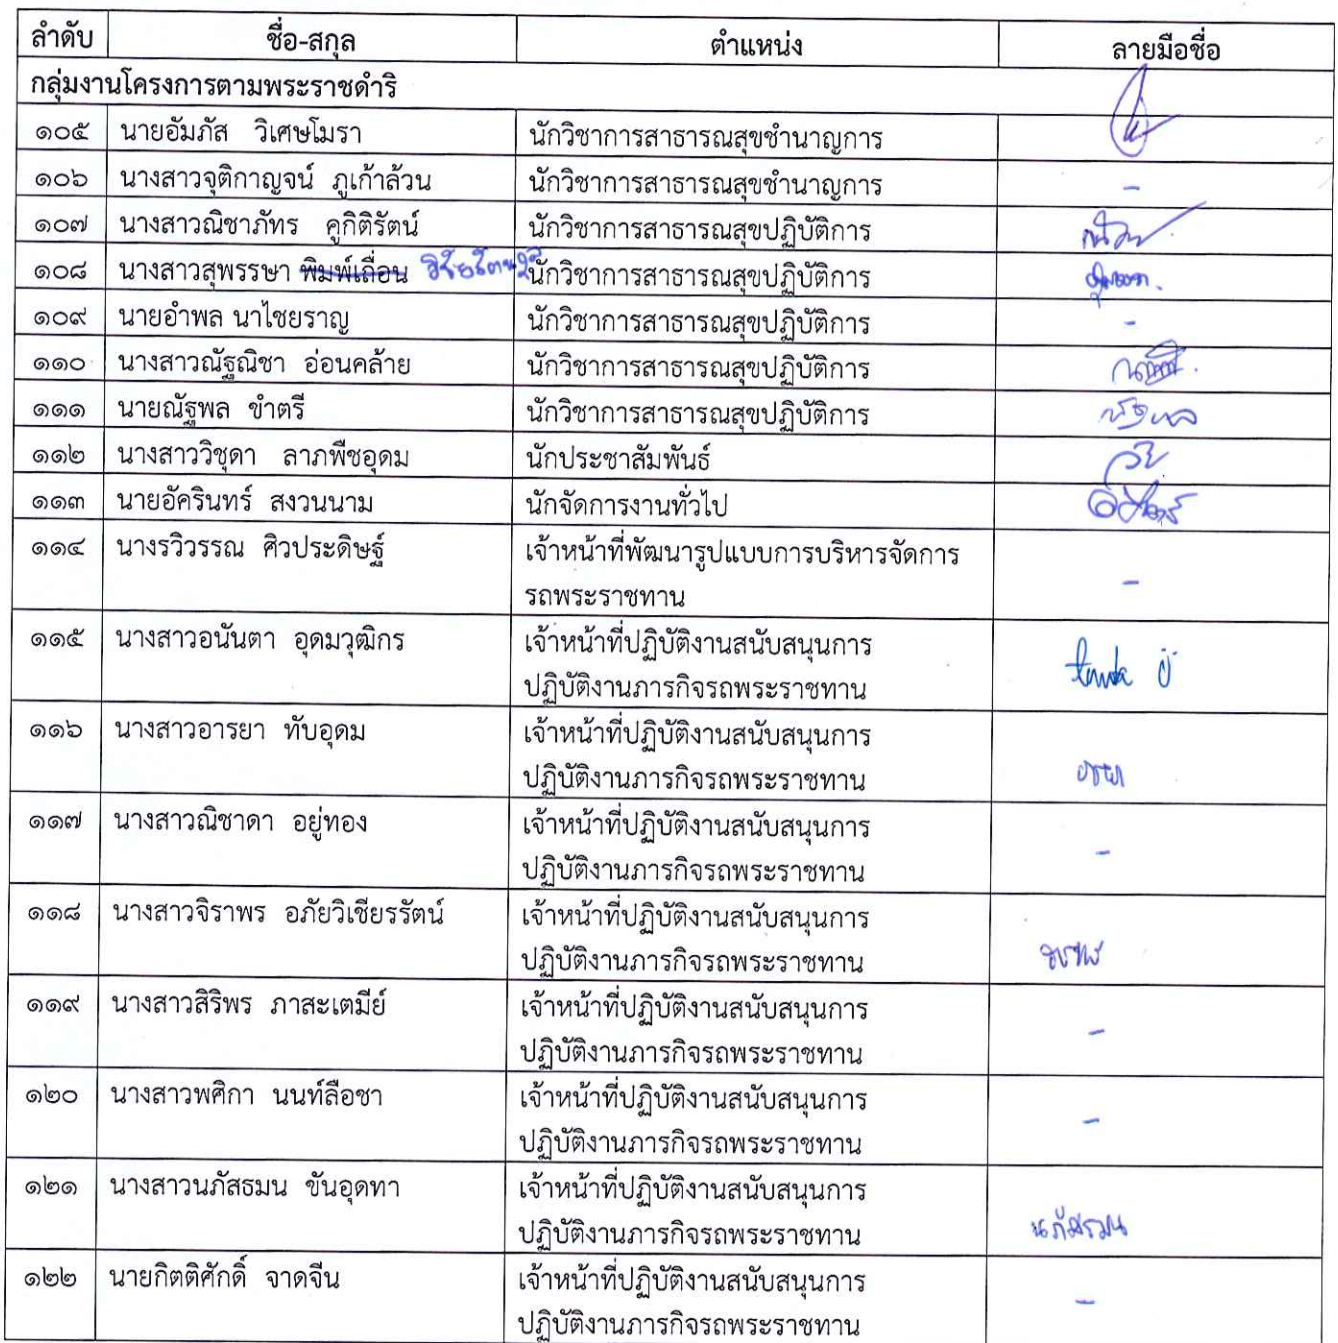 ลำดับ ชื่อ-สกุล ตำแหน่ง ลายมือชื่อ
กลุ่มงานโครงการตามพระราชดำริ
๑๐๕ นายอัมภัส วิเศษโมรา นักวิชาการสาธารณสุขชำนาญการ
๑๐๖ นางสาวจุติกาญจน์ ภูเก้าล้วน นักวิชาการสาธารณสุขชำนาญการ -
๑๐๗ นางสาวณิชาภัทร คูกิติรัตน์ นักวิชาการสาธารณสุขปฏิบัติการ
๑๐๘ นางสาวสุพรรษา พิมพ์เถื่อน นักวิชาการสาธารณสุขปฏิบัติการ
๑๐๙ นายอำพล นาไชยราญ นักวิชาการสาธารณสุขปฏิบัติการ -
๑๑๐ นางสาวณัฐณิชา อ่อนคล้าย นักวิชาการสาธารณสุขปฏิบัติการ
๑๑๑ นายณัฐพล ขำตรี นักวิชาการสาธารณสุขปฏิบัติการ ณัฐพล
๑๑๒ นางสาววิชุดา ลาภพืชอุดม นักประชาสัมพันธ์
๑๑๓ นายอัครินทร์ สงวนนาม นักจัดการงานทั่วไป
๑๑๔ นางรวิวรรณ ศิวประดิษฐ์ เจ้าหน้าที่พัฒนารูปแบบการบริหารจัดการ
รถพระราชทาน -
๑๑๕ นางสาวอนันตา อุดมวุฒิกร เจ้าหน้าที่ปฏิบัติงานสนับสนุนการ
ปฏิบัติงานภารกิจรถพระราชทาน
๑๑๖ นางสาวอารยา ทับอุดม เจ้าหน้าที่ปฏิบัติงานสนับสนุนการ
ปฏิบัติงานภารกิจรถพระราชทาน อารยา
๑๑๗ นางสาวณิชาดา อยู่ทอง เจ้าหน้าที่ปฏิบัติงานสนับสนุนการ
ปฏิบัติงานภารกิจรถพระราชทาน -
๑๑๘ นางสาวจิราพร อภัยวิเชียรรัตน์ เจ้าหน้าที่ปฏิบัติงานสนับสนุนการ
ปฏิบัติงานภารกิจรถพระราชทาน จิราพร
๑๑๙ นางสาวสิริพร ภาสะเตมีย์ เจ้าหน้าที่ปฏิบัติงานสนับสนุนการ
ปฏิบัติงานภารกิจรถพระราชทาน -
๑๒๐ นางสาวพศิกา นนท์ลือชา เจ้าหน้าที่ปฏิบัติงานสนับสนุนการ
ปฏิบัติงานภารกิจรถพระราชทาน -
๑๒๑ นางสาวนภัสธมน ขันอุดทา เจ้าหน้าที่ปฏิบัติงานสนับสนุนการ
ปฏิบัติงานภารกิจรถพระราชทาน นภัสธมน
๑๒๒ นายกิตติศักดิ์ จาดจีน เจ้าหน้าที่ปฏิบัติงานสนับสนุนการ
ปฏิบัติงานภารกิจรถพระราชทาน -